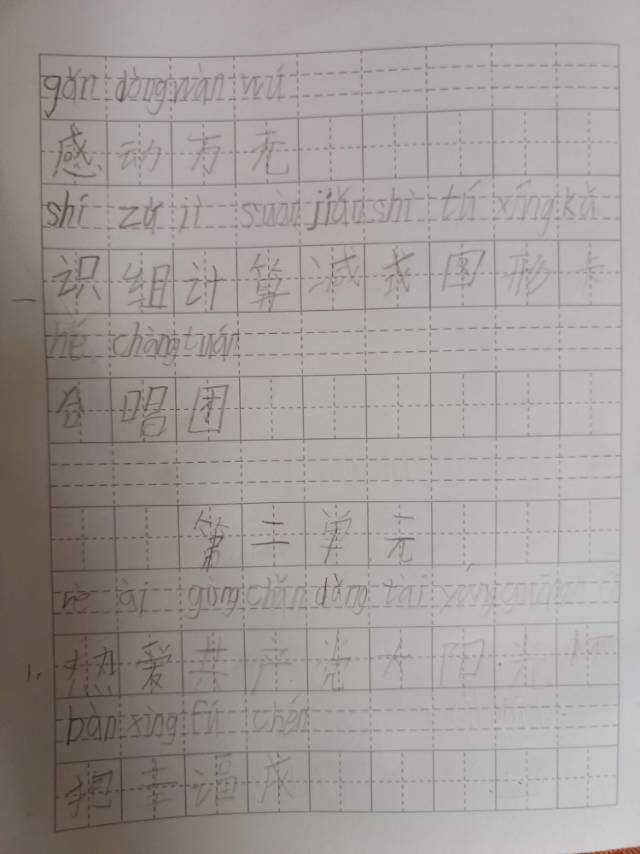 gǎn dòng wàn wú
感动万无
shí zǔ jì suàn jiǎn shì tú xíng kǎ
识组计算减式图形卡
一
hé chàng tuán
合唱团
第二单元
rè ài gòng chǎn dǎng tài yáng guāng
1. 热爱共产党太阳光
xìng fú chén
把幸福成